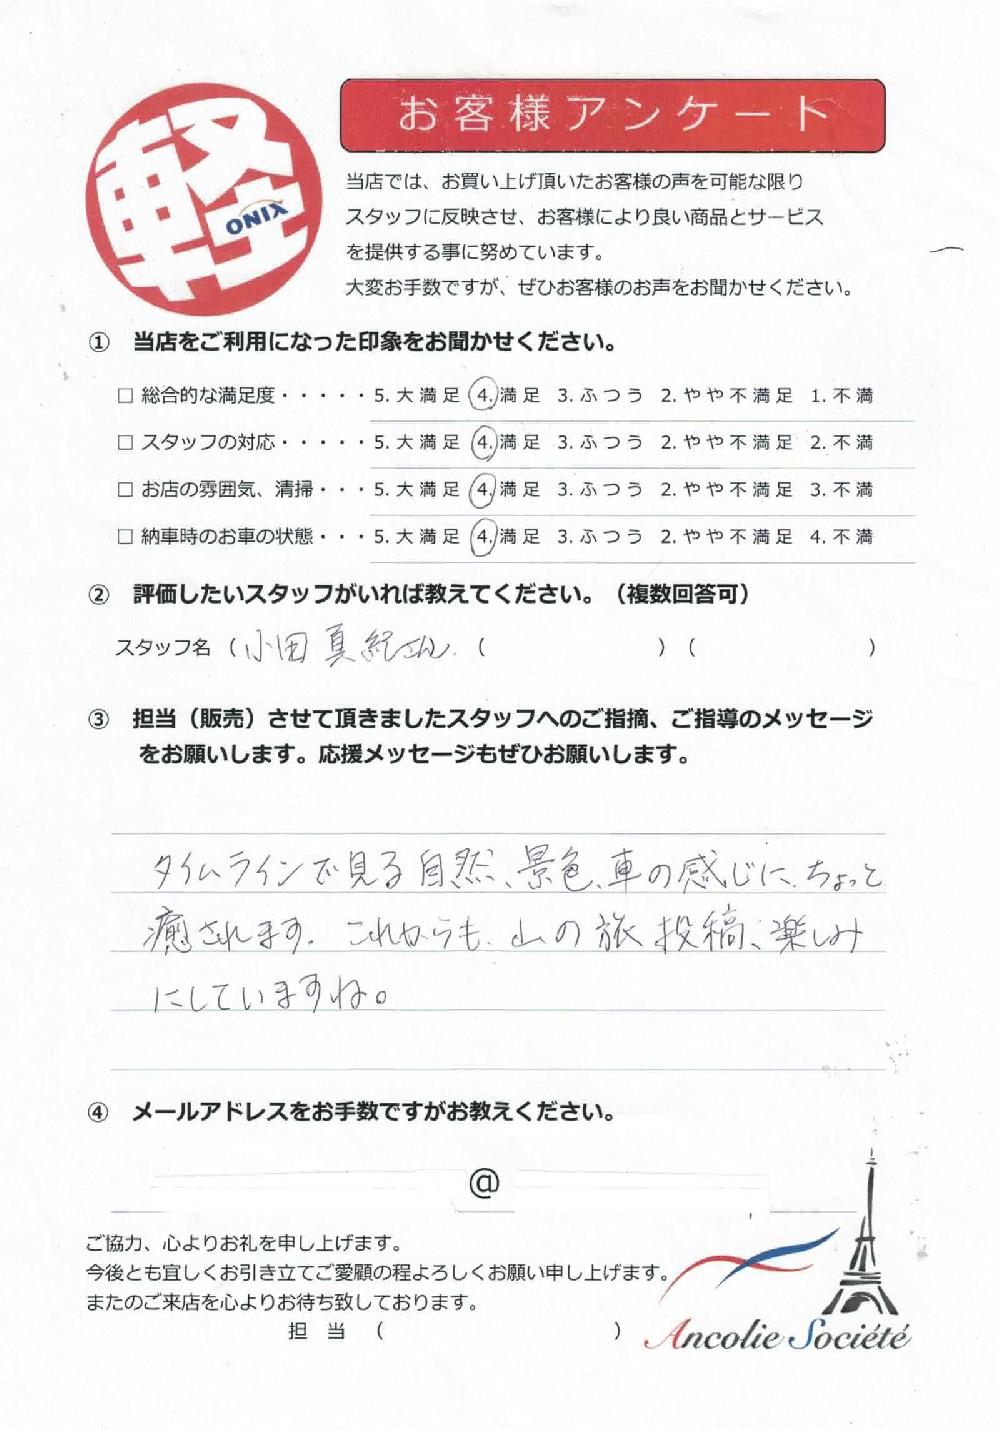 お客様アンケート
軽
ONIX
当店では、お買い上げ頂いたお客様の声を可能な限り
スタッフに反映させ、お客様により良い商品とサービス
を提供する事に努めています。
大変お手数ですが、ぜひお客様のお声をお聞かせください。
① 当店をご利用になった印象をお聞かせください。
□ 総合的な満足度・・・・・5. 大満足 4. 満足 3. ふつう 2. やや不満足 1. 不満
□ スタッフの対応・・・・・5. 大満足 4. 満足 3. ふつう 2. やや不満足 2. 不満
□ お店の雰囲気、清掃・・・5. 大満足 4. 満足 3. ふつう 2. やや不満足 3. 不満
□ 納車時のお車の状態・・・5. 大満足 4. 満足 3. ふつう 2. やや不満足 4. 不満
② 評価したいスタッフがいれば教えてください。（複数回答可）
スタッフ名（小田 真紀さん （ ）（ ）
③ 担当（販売）させて頂きましたスタッフへのご指摘、ご指導のメッセージ
をお願いします。応援メッセージもぜひお願いします。
タイムラインで見る自然、景色、車の感じに、ちょっと
癒されます。これからも、山の旅 投稿、楽しみ
にしていますね。
④ メールアドレスをお手数ですがお教えください。
@
ご協力、心よりお礼を申し上げます。
今後とも宜しくお引き立てご愛顧の程よろしくお願い申し上げます。
またのご来店を心よりお待ち致しております。
担 当 （ ）
Ancolie Société